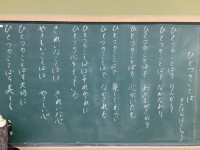 ひとつのことば
ひとつのことばで けんかして
ひとつのことばで なかなおり
ひとつのことばで 頭が下がり
ひとつのことばで 心がいたむ
ひとつのことばで 楽しく笑い
ひとつのことばで 泣かされる
ひとつのことばは それぞれに
ひとつの心を もっている
きれいなことばは きれいな心
やさしいことばは やさしい心
ひとつのことばを 大切に
ひとつのことばを 美しく